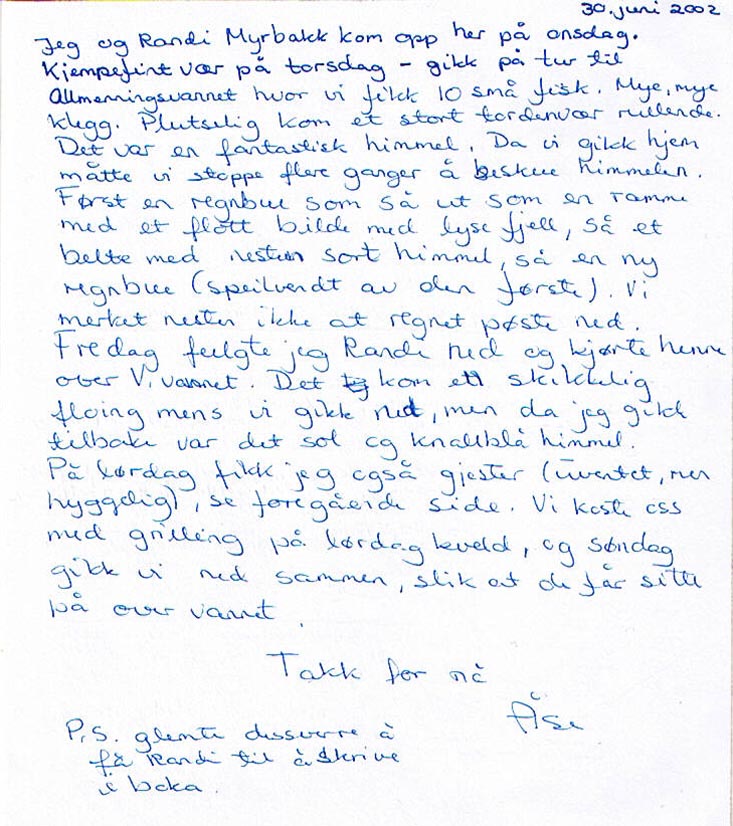 30. juni 2002
Jeg og Randi Myrbakk kom opp her på onsdag.
Kjempefint vær på torsdag – gikk på tur til
Allmenningsvannet hvor vi fikk 10 små fisk. Mye, mye
klegg. Plutselig kom et stort tordenvær rullende.
Det var en fantastisk himmel. Da vi gikk hjem
måtte vi stoppe flere ganger å beskue himmelen.
Først en regnbue som så ut som en ramme
med et flott bilde med lyse fjell, så et
belte med nesten sort himmel, så en ny
regnbue (speilvendt av den første). Vi
merket nesten ikke at regnet pøste ned.
Fredag fulgte jeg Randi ned og kjørte henne
over V.vannet. Det kom ett skikkelig
floing mens vi gikk ned, men da jeg gikk
tilbake var det sol og knallblå himmel.
På lørdag fikk jeg også gjester (uventet, men
hyggelig), se foregående side. Vi koste oss
med grilling på lørdag kveld, og søndag
gikk vi ned sammen, slik at de får sitte
på over vannet.
Takk for nå
Åse
P.S. glemte dessverre å
få Randi til å skrive
i boka.